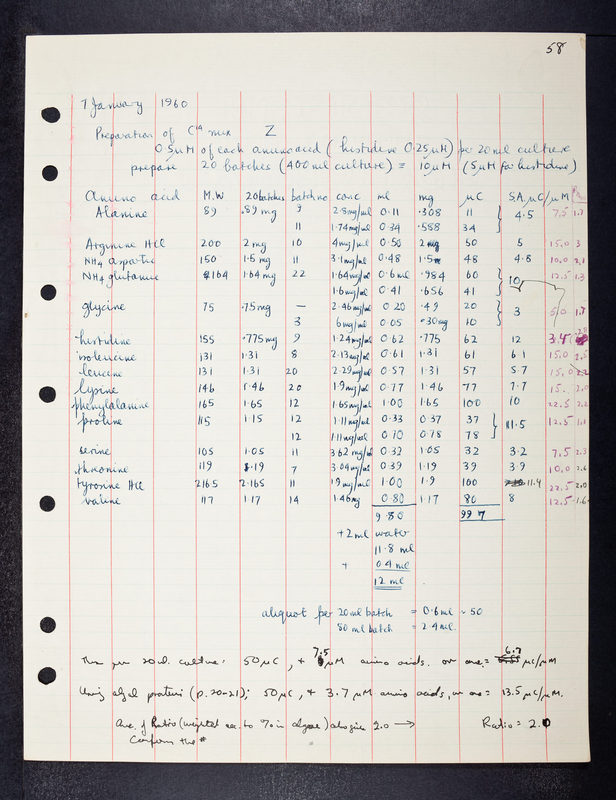 58
7 January 1960
Preparation of C14 mix Z
0.5 μM of each amino acid (histidine 0.25 μM) per 20 ml culture
prepare 20 batches (400 ml culture) = 10 μM (5 μM for histidine)
Amino acid M.W 20 batches batch no conc ml mg μC SA μC/μM
Alanine 89 .89 mg 9 2.8 mg/ml 0.11 .308 11 4.5 7.5 1.7
11 1.74 mg/ml 0.34 .588 34
Arginine HCl 200 2 mg 10 4 mg/ml 0.50 2 mg 50 5 15.0 3
NH4 aspartic 150 1.5 mg 11 3.1 mg/ml 0.48 1.5 48 4.8 10.0 2.1
NH4 glutamic 164 1.64 mg 22 1.64 mg/ml 0.6 ml .984 60 10 12.5 1.3
1.6 mg/ml 0.41 .656 41
glycine 75 .75 mg — 2.46 mg/ml 0.20 .49 20 3 5.0 1.7
3 6 mg/ml 0.05 .30 mg 10
histidine 155 .775 mg 9 1.24 mg/ml 0.62 .775 62 12
isoleucine 131 1.31 8 2.13 mg/ml 0.61 1.31 61 6.1 15.0 2.5
leucine 131 1.31 20 2.29 mg/ml 0.57 1.31 57 5.7 15.0
lysine 146 1.46 20 1.9 mg/ml 0.77 1.46 77 7.7 15. 2.0
phenylalanine 165 1.65 12 1.65 mg/ml 1.00 1.65 100 10 22.5 2.2
proline 115 1.15 12 1.11 mg/ml 0.33 0.37 37 11.5 12.5 1.1
12 1.11 mg/ml 0.70 0.78 78
serine 105 1.05 11 3.62 mg/ml 0.32 1.05 32 3.2 7.5 2.3
threonine 119 1.19 7 3.04 mg/ml 0.39 1.19 39 3.9 10.0 2.6
tyrosine HCl 2165 2.165 11 1.9 mg/ml 1.00 1.9 100 11.4 22.5 2.0
valine 117 1.17 14 1.46 mg 0.80 1.17 80 8 12.5 1.6
9.80 997
+ 2 ml water
11.8 ml
+ 0.4 ml
12 ml
aliquot per 20 ml batch = 0.6 ml ~ 50
80 ml batch = 2.4 ml.
Thus per 20 ml culture: 50 μC, + 7.5 μM amino acids. or ave = 6.7 μC/μM
Using algal protein (p. 20-21); 50 μC, + 3.7 μM amino acids, or ave = 13.5 μC/μM.
Ave. of Ratio (weighted acc. to % in algae) also give 2.0 → Ratio = 2.0
Confirm the #